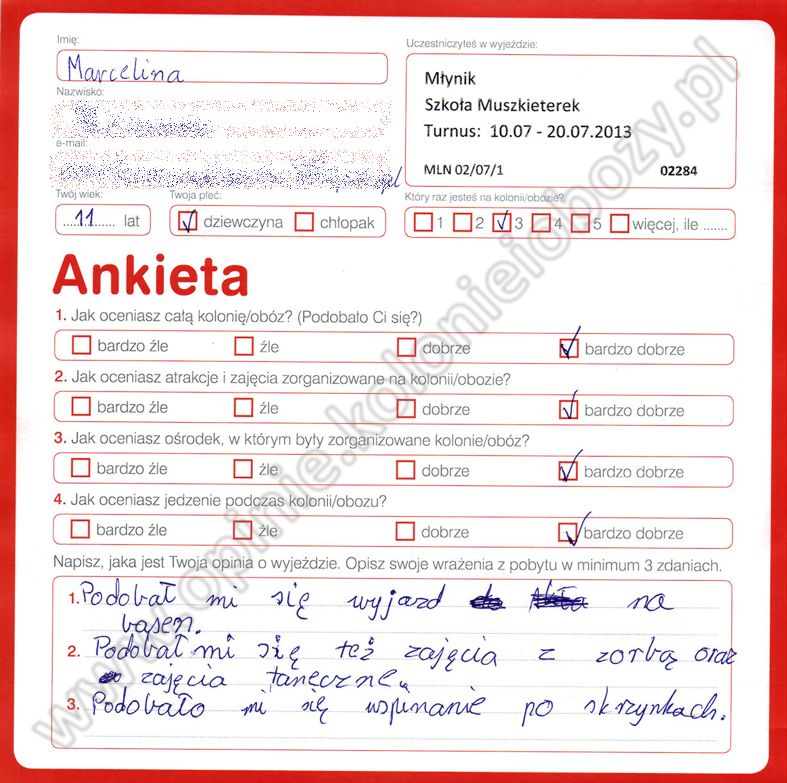 Imię:
Uczestniczyłeś w wyjeździe:
Marcelina
Młynik
Szkoła Muszkieterek
Turnus: 10.07 - 20.07.2013
MLN 02/07/1 02284
Nazwisko:
e-mail:
Twój wiek: Twoja płeć: Który raz jesteś na kolonii/obozie?
11 lat dziewczyna chłopak 1 2 3 4 5 więcej, ile .......
Ankieta
1. Jak oceniasz całą kolonię/obóz? (Podobało Ci się?)
bardzo źle źle dobrze bardzo dobrze
2. Jak oceniasz atrakcje i zajęcia zorganizowane na kolonii/obozie?
bardzo źle źle dobrze bardzo dobrze
3. Jak oceniasz ośrodek, w którym były zorganizowane kolonie/obóz?
bardzo źle źle dobrze bardzo dobrze
4. Jak oceniasz jedzenie podczas kolonii/obozu?
bardzo źle źle dobrze bardzo dobrze
Napisz, jaka jest Twoja opinia o wyjeździe. Opisz swoje wrażenia z pobytu w minimum 3 zdaniach.
1. Podobał mi się wyjazd na
basen.
2. Podobał mi się też zajęcia z zorbą oraz
zajęcia taneczne.
3. Podobało mi się wspinanie po skrzynkach.
www.opinie.kolonieiobozy.pl